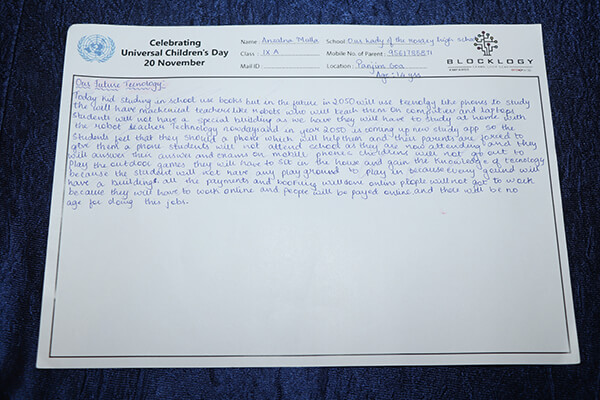 Celebrating
Universal Children's Day
20 November
Name : Anisha Mulla School : Our Lady of the Rosary high school
Class : IX A Mobile No. of Parent : 9561755871
Mail ID : Location : Panjim Goa
Age : 14 yrs
BLOCKLOGY
Our Future Tecnology:-
Today kid studing in school use books but in the future in 2050 will use tecnolgy like phones to study
the will have machenical teachers like robots who will teach them on computer and laptops
Students will not have a special building as we have they will have to study at home with
the robot teacher Technology nowdays and in year 2050 is coming up new study app so the
students feel that they should a phone which will help them and their parents are forced to
give them a phone students will not attend school as they are now attending and they
will answer their answer and exams on mobile phones. Chordlens will not go out to
Play the outdoor games they will have to sit in the house and gain the knowledge of tecnology
because the student will not have any playground to play in because every gound will
have a buildings all the payments and will online people will not got to work
because they will have to work online and people will be payed online and there will be no
age for doing this jobs.